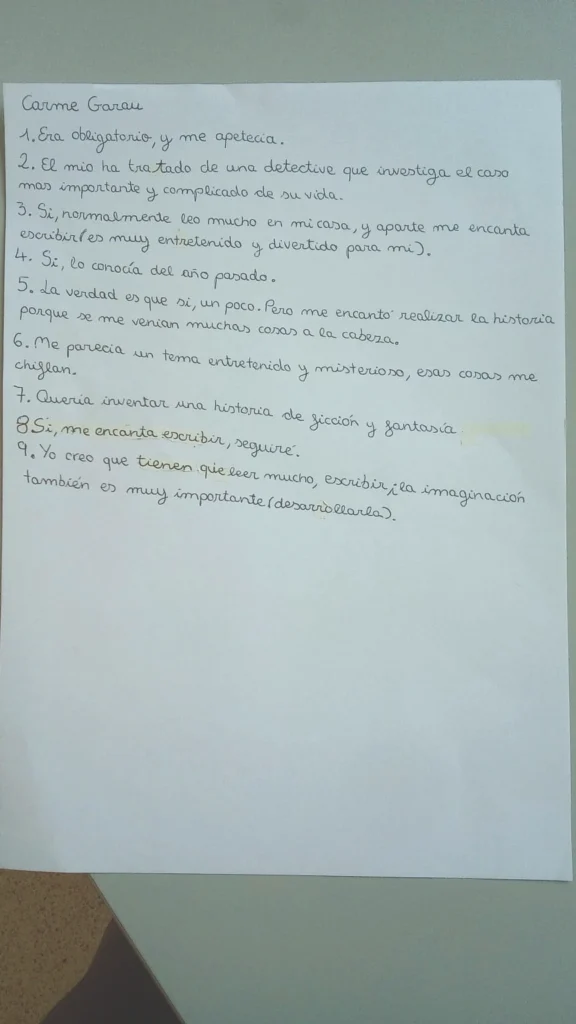 Carme Garau
1. Era obligatorio, y me apetecia.
2. El mio ha tratado de una detective que investiga el caso
mas importante y complicado de su vida.
3. Si, normalmente leo mucho en mi casa, y aparte me encanta
escribir (es muy entretenido y divertido para mi).
4. Si, lo conocía del año pasado.
5. La verdad es que si, un poco. Pero me encantó realizar la historia
porque se me venian muchas cosas a la cabeza.
6. Me parecia un tema entretenido y misterioso, esas cosas me
chiflan.
7. Queria inventar una historia de ficción y fantasía
8 Si, me encanta escribir, seguiré.
9. Yo creo que tienen que leer mucho, escribir, ¡la imaginación
también es muy importante (desarrollarla).